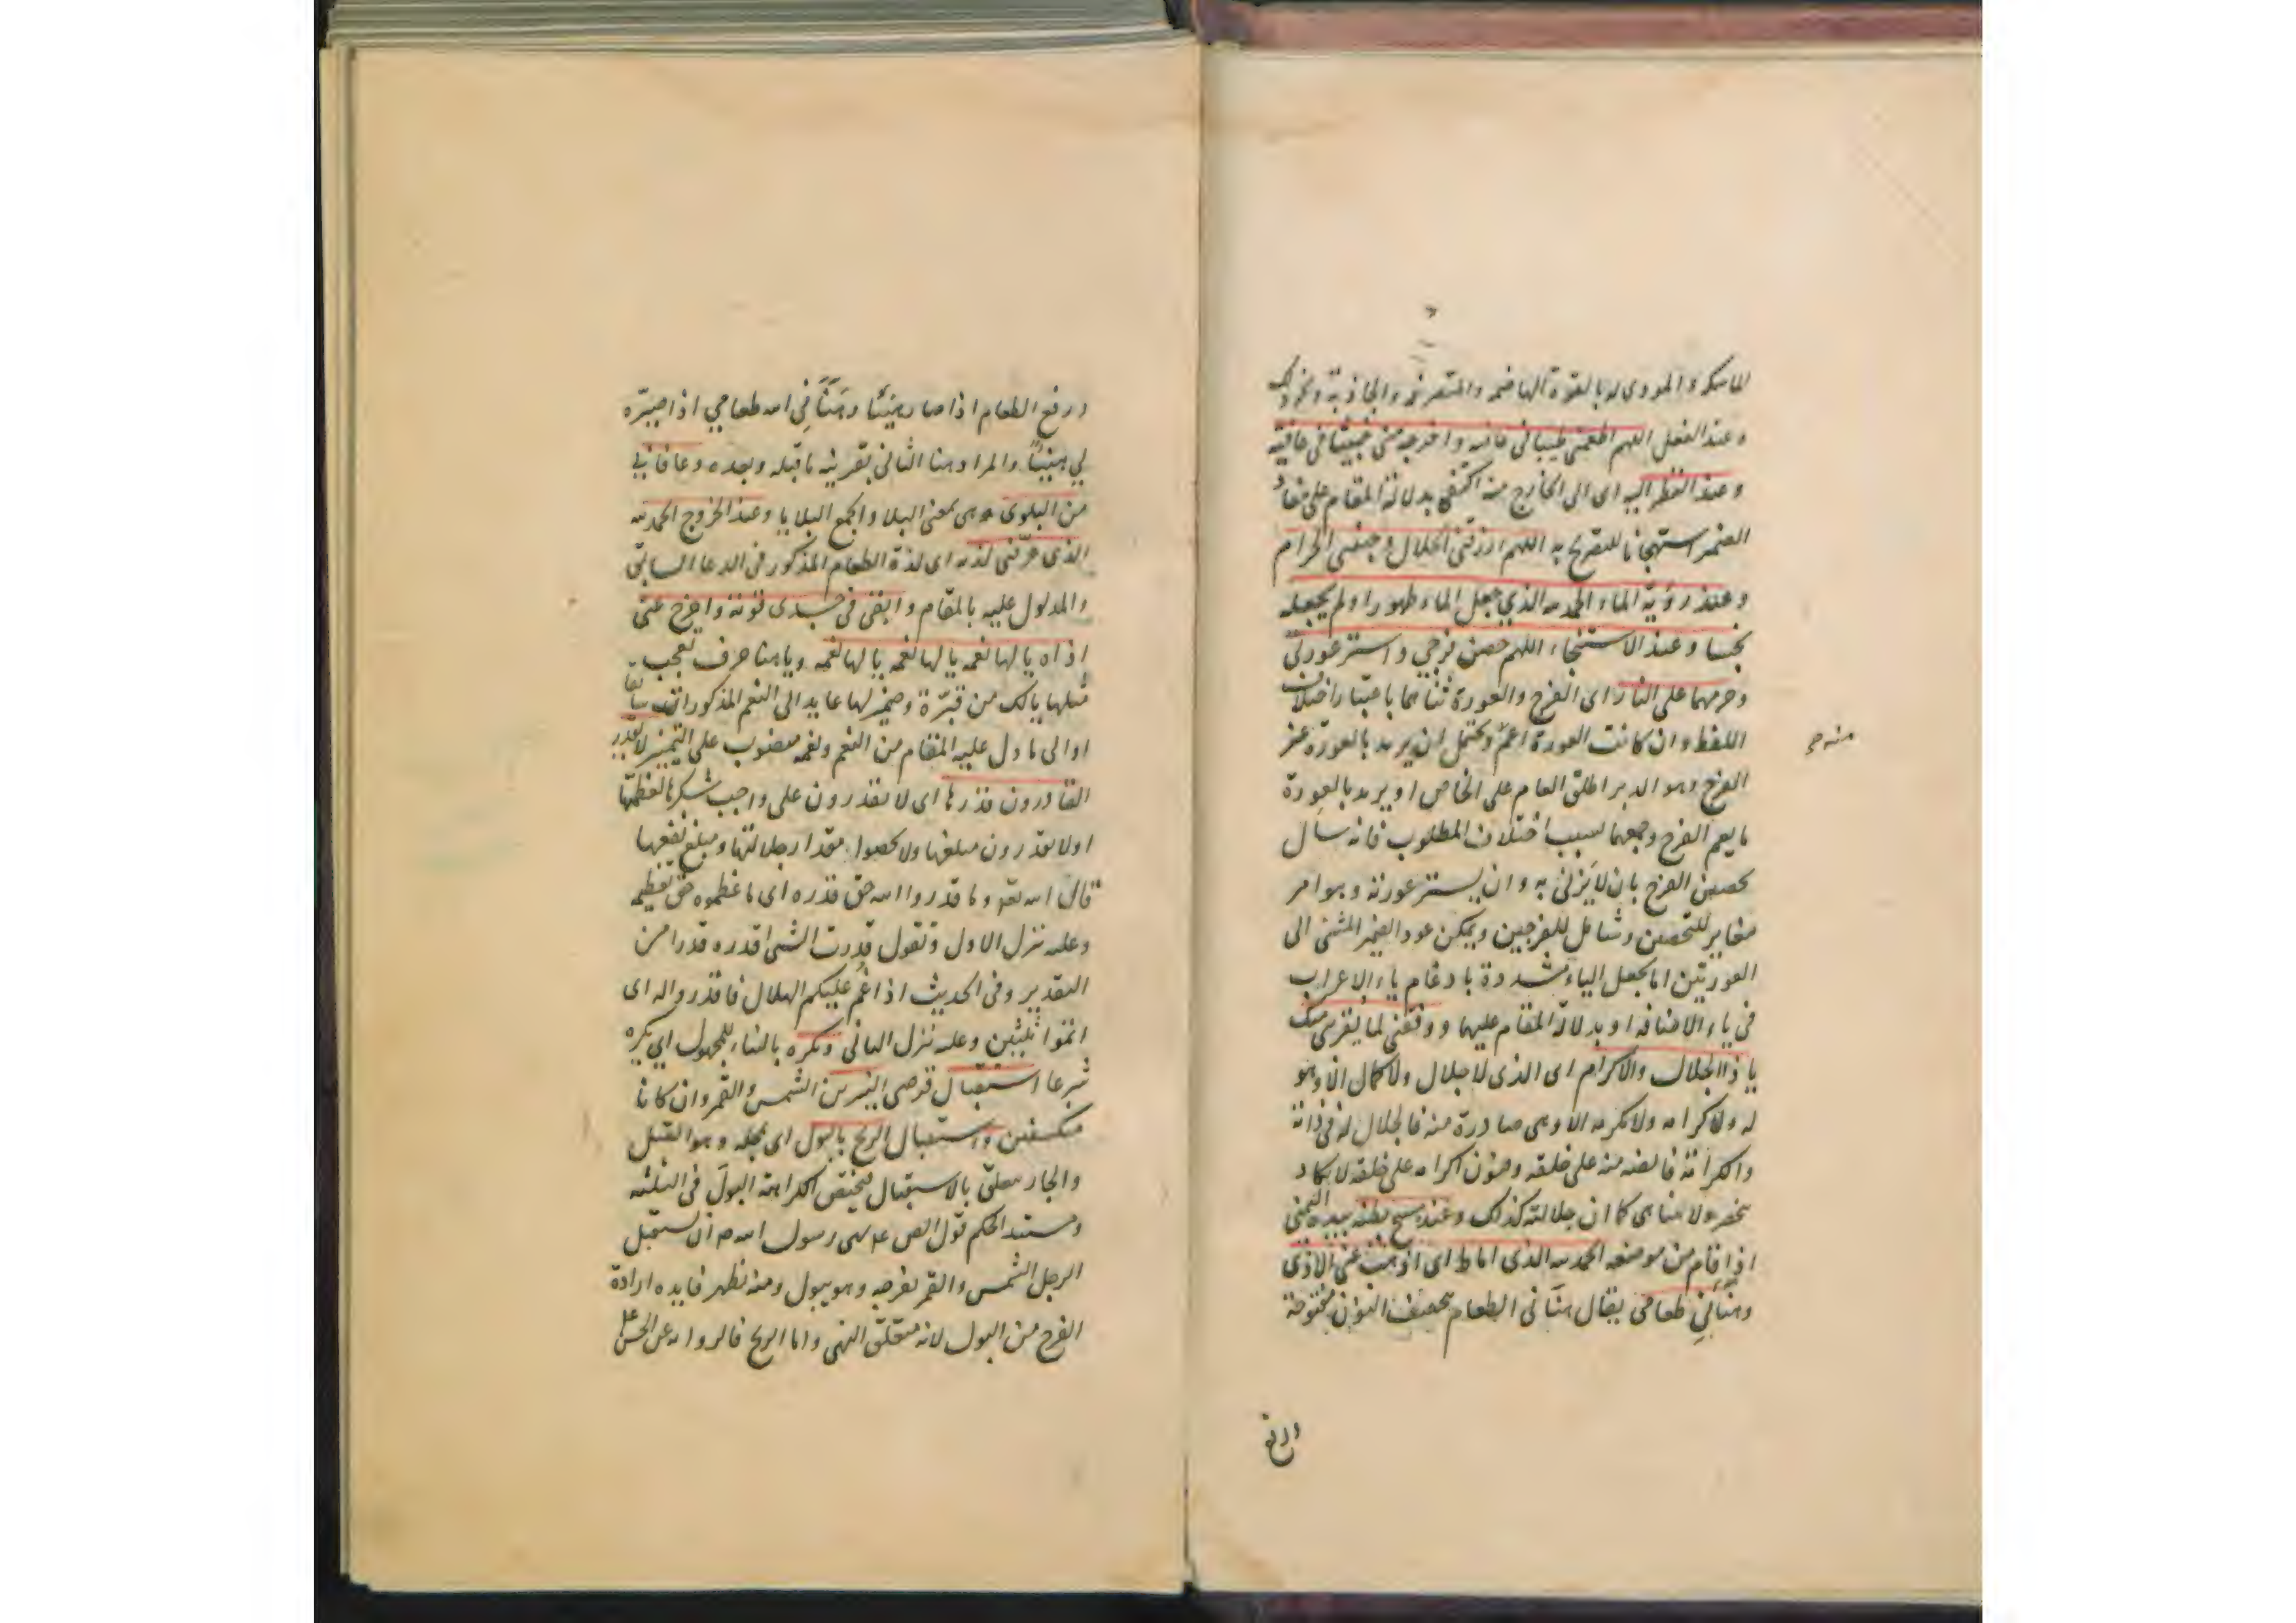 للماسكة والمودى له بالقوة الهاضمة والمتصرفة والجاذبة ونحو ذلك
وعند الفعل اللهم اطعمنى طيبا فى عافيه واخرجه منى خبيثا فى عافية
وعند النظر اليه اى الى الخارج منه اكتفى بدلالة المقام على معاد
الضمير استهجانا للتصريح به اللهم ارزقنى الحلال وجنبنى الحرام
وعند رؤية الماء الحمد لله الذي جعل الماء طهورا ولم يجعله
نجسا وعند الاستنجاء اللهم حصن فرجي واستر عورتى
وحرمهما على النار اى الفرج والعورة ثناهما باعتبار اختلاف
اللفظ وان كانت العورة اعم ويحتمل ان يريد بالعورة غير
الفرج وهو الدبر اطلق العام على الخاص او يريد بالعورة
ما يعم الفرج وجمعهما لسبب اختلاف المطلوب فانه سأل
تحصين الفرج بان لا يزنى به وان يستر عورته وهو امر
مغاير للتحصين وشامل للفرجين ويمكن عود الضمير المثنى الى
العورتين اما بجعل الياء مشددة بادغام ياء الاعراب
فى ياء الاضافه او بدلالة المقام عليهما ووفقنى لما يقربنى منك
يا ذا الجلال والاكرام اى الذى لا جلال ولا كمال الا وهو
له ولا كرامه ولا تكرمه الا وهى صادرة منه فالجلال له فى ذاته
والكرامة فائضه منه على خلقه وفنون اكرامه على خلقه لا تكاد
تنحصر ولا تتناهى كما ان جلالته كذلك وعند مسح بطنه بيده اليمنى
اذا قام من موضعه الحمد لله الذى اماط اى اذهب عنى الاذى
وهنأنى طعامى يقال هنأنى الطعام بتخفيف النون مفتوحة
منه ره
ورفع الطعام اذا صار هنيئا وهنأني الله طعامي اذا صيّره
لي هنيئا والمراد هنا الثانى بقرينه ما قبله وبعده وعافانى
من البلوى هى بمعنى البلا والجمع البلايا وعند الخروج الحمد لله
الذى عرّفنى لذته اى لذة الطعام المذكور فى الدعا السابق
والمدلول عليه بالمقام وابقى فى جسدى قوته واخرج عنى
اذاه يا لها نعمه يا لها نعمه يا لها نعمه ويا هنا حرف تعجب
مثلها يا لك من قبّرة وضمير لها عايد الى النعم المذكورات سابقا
او الى ما دل عليه المقام من النعم ونعمه منصوب على التميز لا يقدر
القادرون قدرها اى لا يقدرون على واجب شكرها لعظمها
او لا يقدرون مبلغها ولا يحصوا مقدار جلالتها ومبلغ نفعها
قال الله تعه وما قدروا الله حق قدره اى ما عظموه حق تعظيمه
وعليه نزل الاول وتقول قدرت الشئ اقدره قدرا من
التقدير وفى الحديث اذا غُم عليكم الهلال فاقدروا له اى
اتموا ثلثين وعليه نزل الثانى ويكره بالبناء للمجهول اي يكره
شرعا استقبال قرصى النيرين الشمس والقمر وان كانا
منكسفين واستقبال الريح بالبول اى بمحله وهو القبل
والجار متعلق بالاستقبال فيختص الكراهة البول فى الثلثه
ومستند الحكم قول الص ع نهى رسول الله ص ان يستقبل
الرجل الشمس والقمر بفرجه وهو يبول ومنه تظهر فايده ارادة
الفرج من البول لانه متعلق النهى واما الريح فالمروى عن الحسن ع